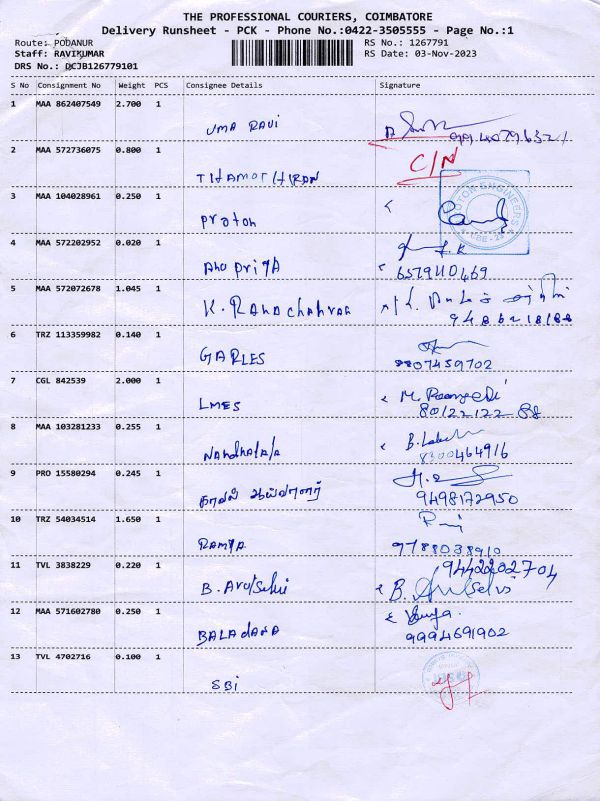 THE PROFESSIONAL COURIERS, COIMBATORE
Delivery Runsheet - PCK - Phone No.:0422-3505555 - Page No.:1
Route: PODANUR
RS No.: 1267791
Staff: RAVIKUMAR
RS Date: 03-Nov-2023
DRS No.: DCJB126779101
S No Consignment No Weight PCS Consignee Details Signature
1 MAA 862407549 2.700 1
UMA RAVI
2 MAA 572736075 0.800 1 C/N
3 MAA 104028961 0.250 1
Proton
4 MAA 572202952 0.020 1
Anu PRIYA
6579410469
5 MAA 572072678 1.045 1
K.
6 TRZ 113359982 0.140 1
GARLES
8807459702
7 CGL 842539 2.000 1
LMES
8 MAA 103281233 0.255 1
8300464916
9 PRO 15580294 0.245 1
காவல் ஆய்வாளர் 9498172950
10 TRZ 54034514 1.650 1
RAMYA 9788038910
11 TVL 3838229 0.220 1 9442202704
B. Arulselvi B. Arulselvi
12 MAA 571602780 0.250 1
9994691902
13 TVL 4702716 0.100 1
SBI